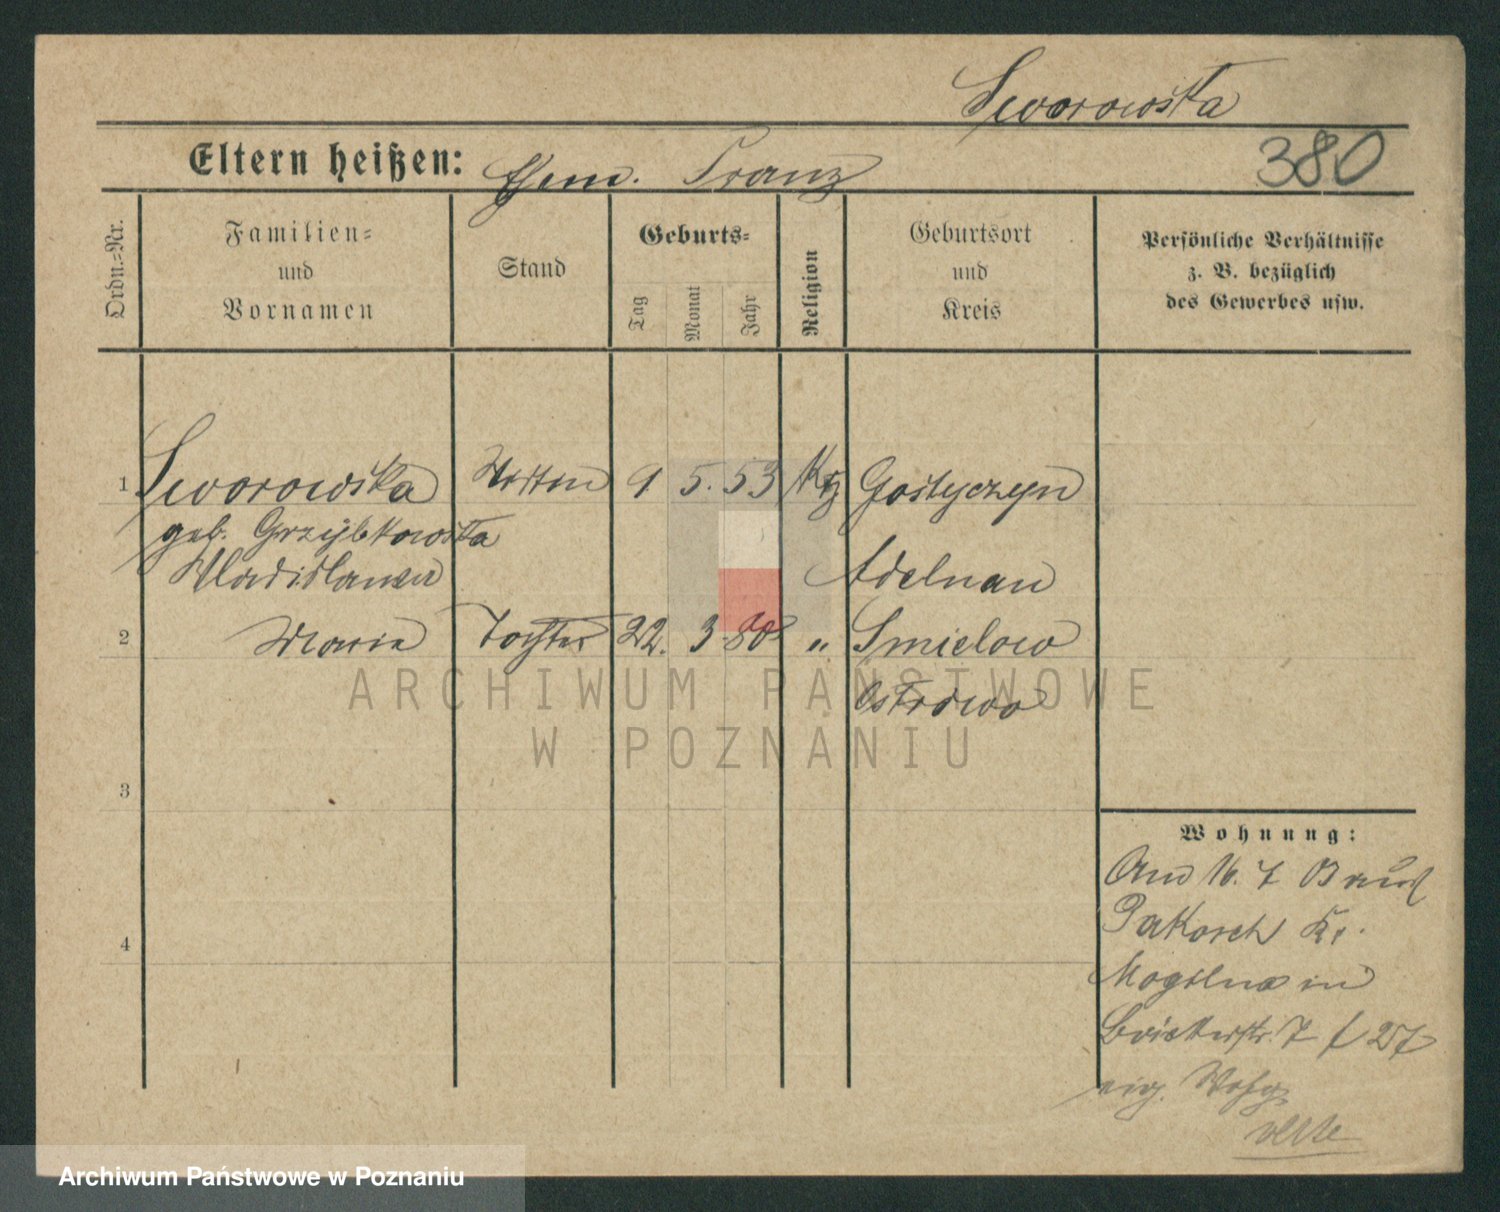 Sworowska
Eltern heißen: Ehem. Franz
380
Ordn.-Nr.
Familien-
und
Vornamen
Stand
Geburts-
Tag
Monat
Jahr
Religion
Geburtsort
und
Kreis
Persönliche Verhältnisse
z. B. bezüglich
des Gewerbes usw.
1 Sworowska 9 5. 53 Gostyczyn
geb. Grzybkowska
Wladislawa Adelnau
2 Maria Tochter 22. 3 80 " Smielow
Ostrowo
3
4
Wohnung:
Am 16. 7 03 aus
Pakosch Kr.
Mogilno in
7 f 257
eig. Wohg.
ARCHIWUM PAŃSTWOWE
W POZNANIU
Archiwum Państwowe w Poznaniu